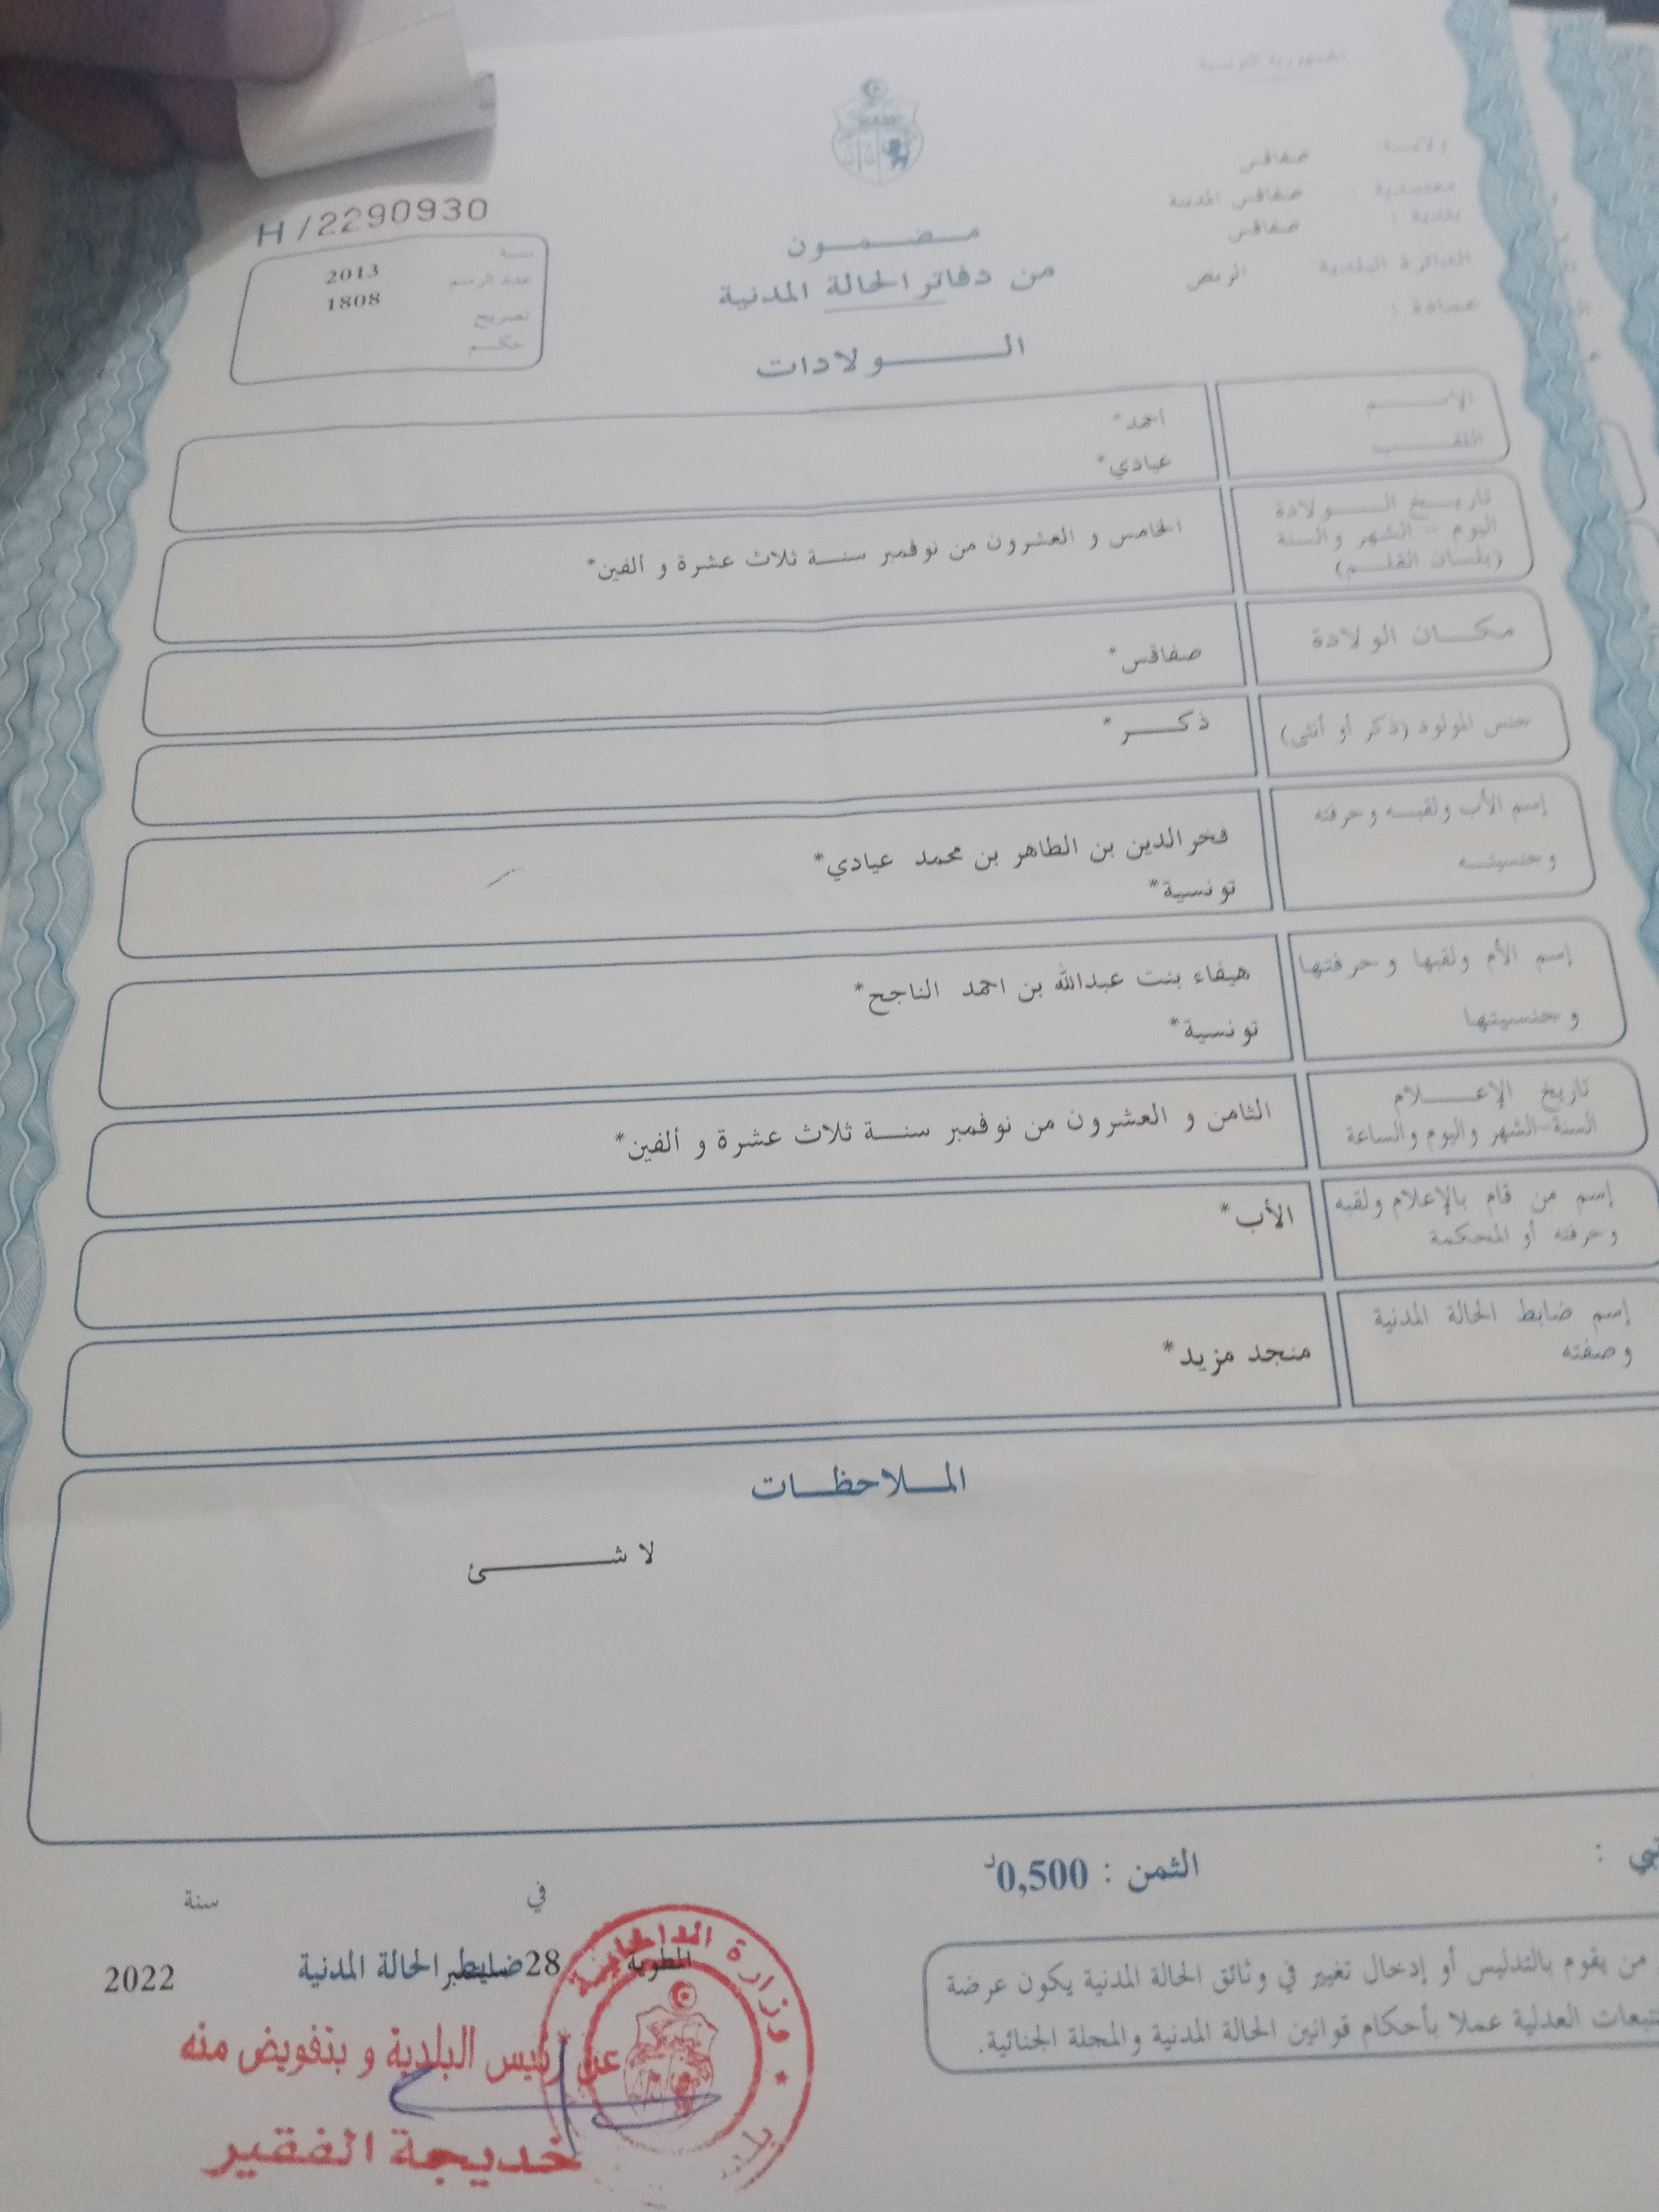 الجمهورية التونسية
ولاية: صفاقس
معتمدية : صفاقس المدينة
بلدية : صفاقس
الدائرة البلدية الربض
عمادة :
H/2290930
سنة 2013
عدد الرسم 1808
تصريح
حكم
مضمون
من دفاتر الحالة المدنية
الولادات
الإسم احمد*
اللقب عيادي*
تاريخ الولادة
اليوم - الشهر والسنة
(بلسان القلم)
الخامس و العشرون من نوفمبر سنة ثلاث عشرة و ألفين*
مكان الولادة صفاقس*
جنس المولود (ذكر أو أنثى) ذكر*
إسم الأب ولقبه وحرفته
وجنسيته
فخر الدين بن الطاهر بن محمد عيادي*
تونسية*
إسم الأم ولقبها وحرفتها
وجنسيتها
هيفاء بنت عبدالله بن احمد الناجح*
تونسية*
تاريخ الإعلام
السنة-الشهر واليوم والساعة
الثامن و العشرون من نوفمبر سنة ثلاث عشرة و ألفين*
إسم من قام بالإعلام ولقبه
وحرفته أو المحكمة
الأب*
إسم ضابط الحالة المدنية
وصفته
منجد مزيد*
الملاحظات
لا شئ
الثمن : 0,500د
من يقوم بالتدليس أو إدخال تغيير في وثائق الحالة المدنية يكون عرضة
العدلية عملا بأحكام قوانين الحالة المدنية والمجلة الجنائية.
في سنة
المطوية 28 2022
ضابط الحالة المدنية
وزارة الداخلية
عن رئيس البلدية و بتفويض منه
خديجة الفقير